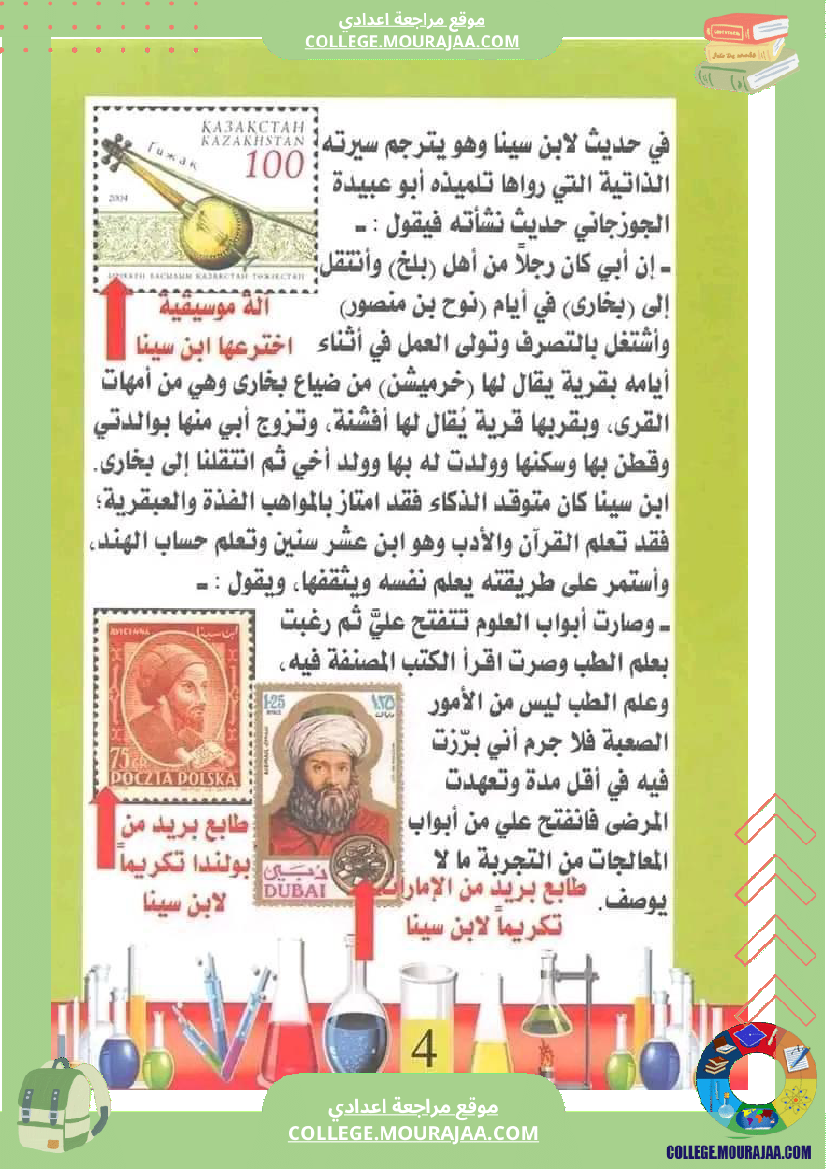 موقع مراجعة اعدادي
COLLEGE.MOURAJAA.COM
ҚАЗАҚСТАН
KAZAKHSTAN
100
Гижак
2004
في حديث لابن سينا وهو يترجم سيرته
الذاتية التي رواها تلميذه أبو عبيدة
الجوزجاني حديث نشأته فيقول : ـ
ـ إن أبي كان رجلاً من أهل (بلخ) وأنتقل
إلى (بخارى) في أيام (نوح بن منصور)
وأشتغل بالتصرف وتولى العمل في أثناء
آلة موسيقية
اخترعها ابن سينا
أيامه بقرية يقال لها (خرميشن) من ضياع بخارى وهي من أمهات
القرى، وبقربها قرية يُقال لها أفشنة، وتزوج أبي منها بوالدتي
وقطن بها وسكنها وولدت له بها وولد أخي ثم انتقلنا إلى بخارى.
ابن سينا كان متوقد الذكاء فقد امتاز بالمواهب الفذة والعبقرية؛
فقد تعلم القرآن والأدب وهو ابن عشر سنين وتعلم حساب الهند،
وأستمر على طريقته يعلم نفسه ويثقفها، ويقول : ـ
ـ وصارت أبواب العلوم تتفتح عليَّ ثم رغبت
بعلم الطب وصرت اقرأ الكتب المصنفة فيه،
وعلم الطب ليس من الأمور
الصعبة فلا جرم أني برّزت
فيه في أقل مدة وتعهدت
المرضى فانفتح علي من أبواب
المعالجات من التجربة ما لا
يوصف.
AVICENNA
ابن سينا
75 GR
POCZTA POLSKA
طابع بريد من
بولندا تكريماً
لابن سينا
1.25
١،٢٥
دبي
DUBAI
طابع بريد من الإمارات
تكريماً لابن سينا
4
موقع مراجعة اعدادي
COLLEGE.MOURAJAA.COM
COLLEGE.MOURAJAA.COM